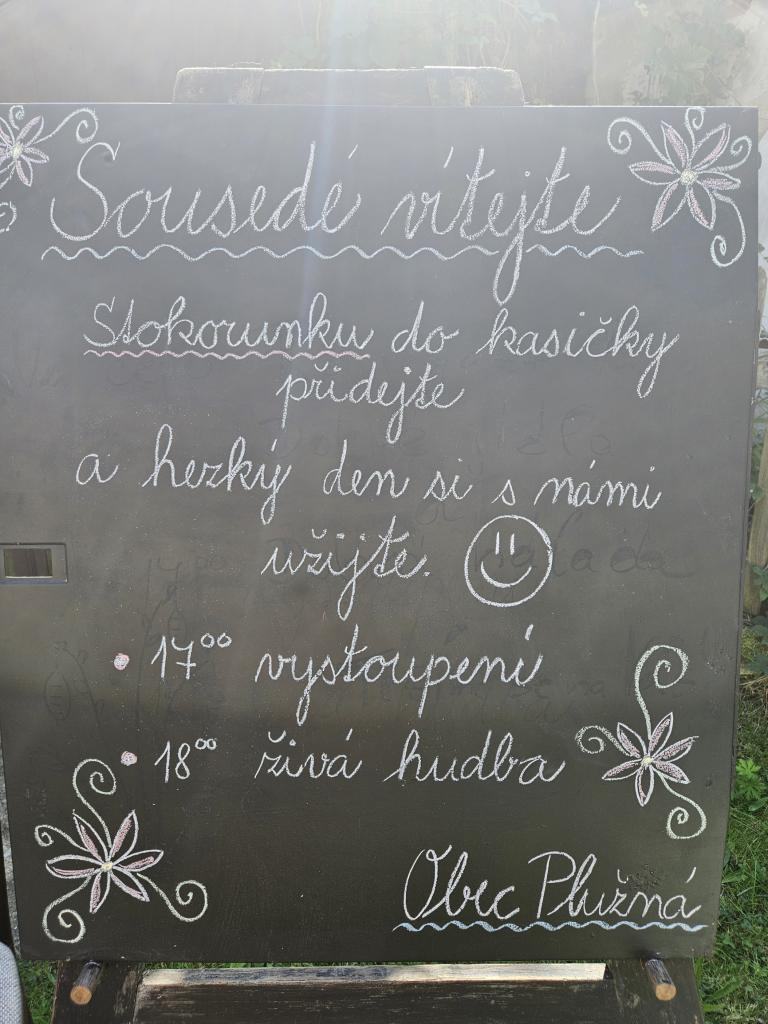 Sousedé vítejte
Stokorunku do kasičky
přidejte
a hezký den si s námi
užijte.
• 17⁰⁰ vystoupení
• 18⁰⁰ živá hudba
Obec Plužná